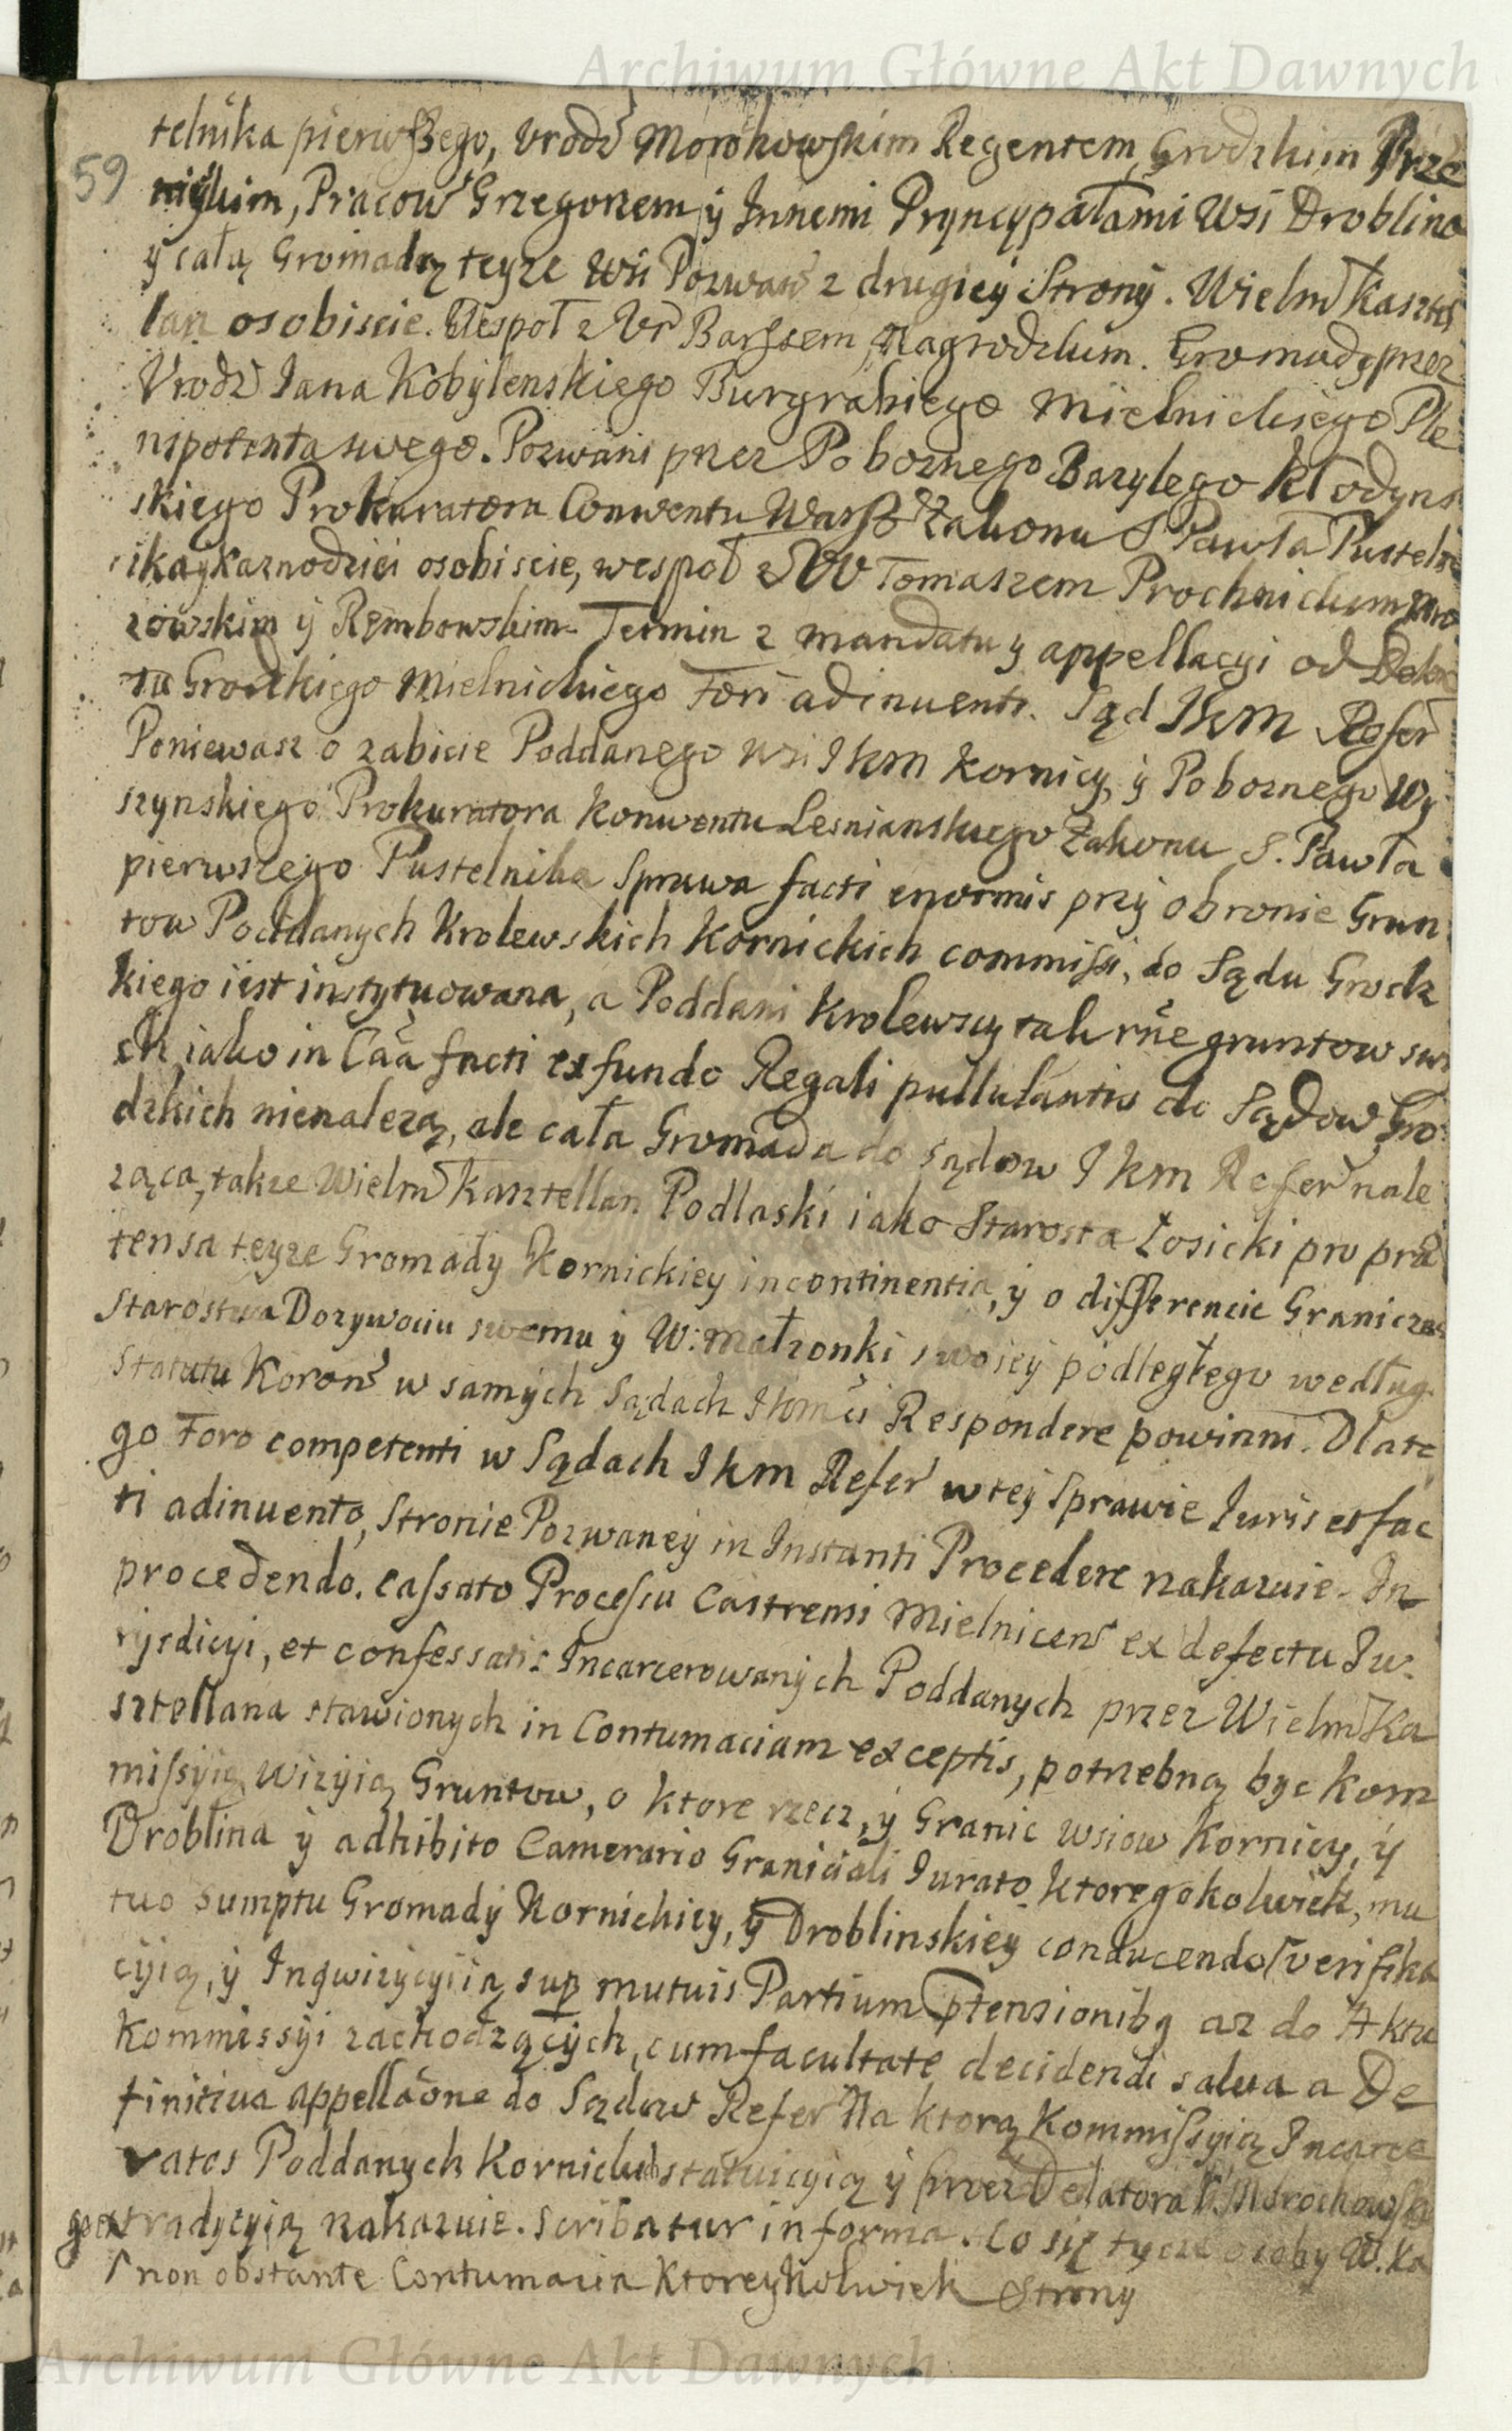 Archiwum Główne Akt Dawnych
59
telnika pierwszego, Urodz Morohowskim Regentem Grodzkim Prze
myskim, Pracow Grzegorzem y Innemi Pryncypałami Wsi Droblina
y całą Gromadą teyze Wsi Pozwan z drugiey Strony. Wielm Kaszte
lan osobiscie. Wespoł z Ur Barssem, Nagrodzkim. Gromady przez
Urodz Jana Kobylenskiego Burgrabiego Mielnickiego Ple
nipotenta swego. Pozwani przez Poboznego Bazylego Kłodyns
skiego Prokuratora Conwentu Warsz Zakonu S. Pawła Pustelni
ika y Kaznodziei osobiscie, wespoł z UU Tomaszem Prochnickim Mro
zowskim y Rembowskim. Termin z mandatu y appellacyi od Dekre
tu Grodzkiego Mielnickiego Fori adinventi. Sąd JKM Refer
Poniewasz o zabicie Poddanego wsi JKM Kornicy, y Poboznego Wy
szynskiego Prokuratora Konwentu Lesnianskiego Zakonu S. Pawła
pierwszego Pustelnika Sprawa facti enormis przy obronie Grun
tow Poddanych Krolewskich Kornickich commissi, do Sądu Grodz
kiego iest instytuowana, a Poddani Krolewscy tak rñe gruntow swo
ich, iako in Caa facti ex fundo Regali pullulantis do Sądow Gro
dzkich nienalezą, ale cała Gromada do sądow JKM Refer nale
ząca, takze Wielm Kasztellan Podlaski iako Starosta Łosicki pro præ
tensa teyze Gromady Kornickiey incontinentia, y o differencie Granicze
Starostwa Dozywociu swemu y W: małzonki swoiey podległego według
Statutu Koron w samych Sądach JKMci Respondere powinni. Dlate
go Foro competenti w Sądach JKM Refer w tey Sprawie Juris et fac
ti adinvento, Stronie Pozwaney in Instanti Procedere nakazuie. In
procedendo. Cassato Processu Castrensi Mielnicens ex defectu Ju
rysdicyi, et confessatis Incarcerowanych Poddanych przez Wielm Ka
sztellana stawionych in Contumaciam exceptis, potrzebną byc Kom
missyią wizyią Gruntow, o ktore rzecz, y Granic wsiow Kornicy, y
Droblina y adhibito Camerario Graniciali Jurato ktoregokolwiek, mu
tuo sumptu Gromady Kornickiey, y Droblinskiey conducendo verifika
cyią, y Inqwizycyią sup mutuis Partium ptensionibq az do Aktu
Kommissyi zachodzących, cum facultate decidendi salva a De
finitiva appellaone do Sądow Refer Na ktorą Kommissyią Incarce
ratos Poddanych Kornickich statuicyią y przez Delatora U. Morochowskie
go extradycyią nakazuie. Scribatur in forma. Co się tycze osoby W. Ka
non obstante Contumacia Ktoreykolwiek Strony
Archiwum Główne Akt Dawnych